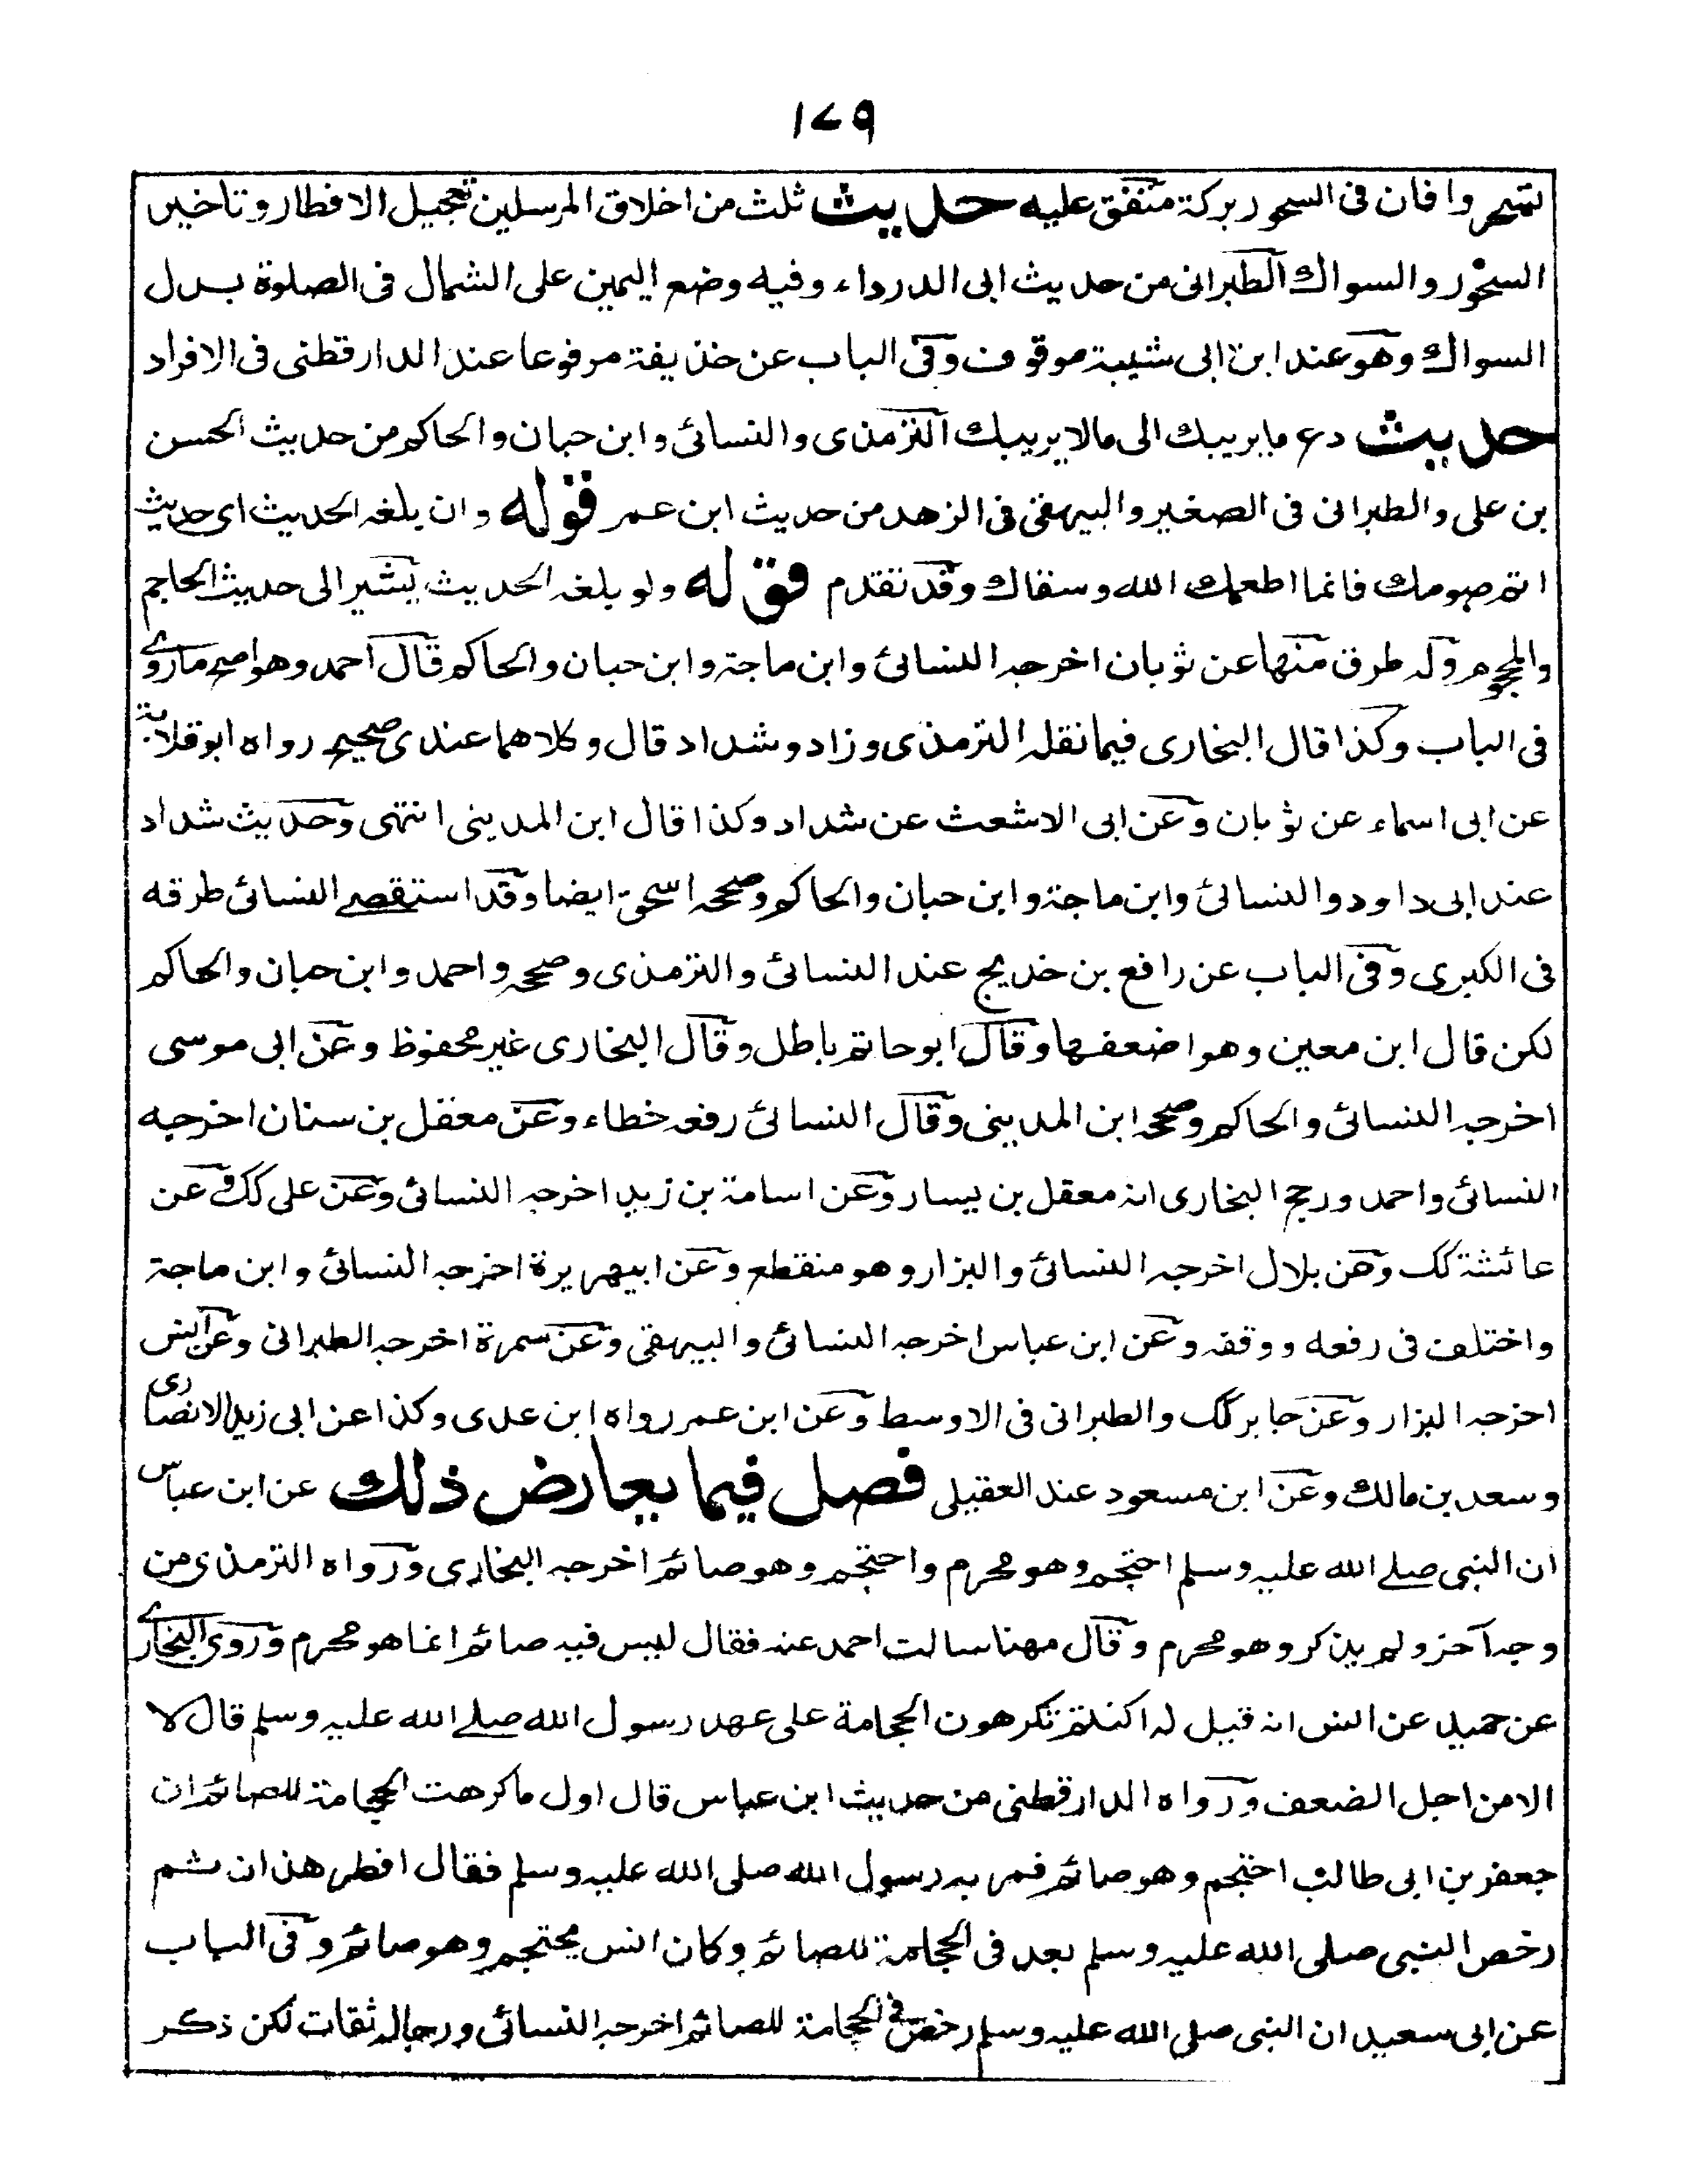 ١٧٩
تسحروا فان فى السحور بركة متفق عليه حديث ثلث من اخلاق المرسلين تعجيل الافطار وتاخير
السحور والسواك الطبرانى من حديث ابى الدرداء وفيه وضع اليمين على الشمال فى الصلوة بدل
السواك وهو عند ابن ابى شيبة موقوف وفى الباب عن حذيفة مرفوعا عند الدارقطنى فى الافراد
حديث دع ما يريبك الى مالا يريبك الترمذى والنسائى وابن حبان والحاكم من حديث الحسن
بن على والطبرانى فى الصغير والبيهقى فى الزهد من حديث ابن عمر قوله وان بلغه الحديث اى حديث
اتم صومك فانما اطعمك الله وسقاك وقد تقدم قوله ولو بلغه الحديث يشير الى حديث الحاجم
والمحجوم وله طرق منها عن ثوبان اخرجه النسائى وابن ماجة وابن حبان والحاكم قال احمد وهو اصح ماروے
فى الباب وكذا قال البخارى فيما نقله الترمذى وزاد وشداد قال وكلاهما عندى صحيح رواه ابوقلابة
عن ابى اسماء عن ثوبان وعن ابى الاشعث عن شداد وكذا قال ابن المدينى انتهى وحديث شداد
عند ابى داود والنسائى وابن ماجة وابن حبان والحاكم وصححه اسحق ايضا وقد استقصے النسائى طرقه
فى الكبرى وفى الباب عن رافع بن خديج عند النسائى والترمذى وصححه واحمد وابن حبان والحاكم
لكن قال ابن معين وهو اضعفها وقال ابوحاتم باطل وقال البخارى غير محفوظ وعن ابى موسى
اخرجه النسائى والحاكم وصححه ابن المدينى وقال النسائى رفعه خطاء وعن معقل بن سنان اخرجه
النسائى واحمد ورجح البخارى انه معقل بن يسار وعن اسامة بن زيد اخرجه النسائى وعن على كك وعن
عائشة كك وعن بلال اخرجه النسائى والبزار وهو منقطع وعن ابيهريرة اخرجه النسائى وابن ماجة
واختلف فى رفعه ووقفه وعن ابن عباس اخرجه النسائى والبيهقى وعن سمرة اخرجه الطبرانى وعن انس
اخرجه البزار وعن جابر كك والطبرانى فى الاوسط وعن ابن عمر رواه ابن عدى وكذا عن ابى زيد الانصارى
وسعد بن مالك وعن ابن مسعود عند العقيلى فصل فيما يعارض ذلك عن ابن عباس
ان النبى صلے الله عليه وسلم احتجم وهو محرم واحتجم وهو صائم اخرجه البخارى ورواه الترمذى من
وجه آخر ولم يذكر وهو محرم وقال مهنا سالت احمد عنه فقال ليس فيه صائم انما هو محرم وروى البخارے
عن حميد عن انس انه قيل له اكنتم تكرهون الحجامة على عهد رسول الله صلے الله عليه وسلم قال لا
الا من اجل الضعف ورواه الدارقطنى من حديث ابن عباس قال اول ما كرهت الحجامة للصائم ان
جعفر بن ابى طالب احتجم وهو صائم فمر به رسول الله صلى الله عليه وسلم فقال افطر هذان ثم
رخص النبى صلى الله عليه وسلم بعد فى الحجامة للصائم وكان انس يحتجم وهو صائم وفى الباب
عن ابى سعيد ان النبى صلى الله عليه وسلم رخص فى الحجامة للصائم اخرجه النسائى ورجاله ثقات لكن ذكر